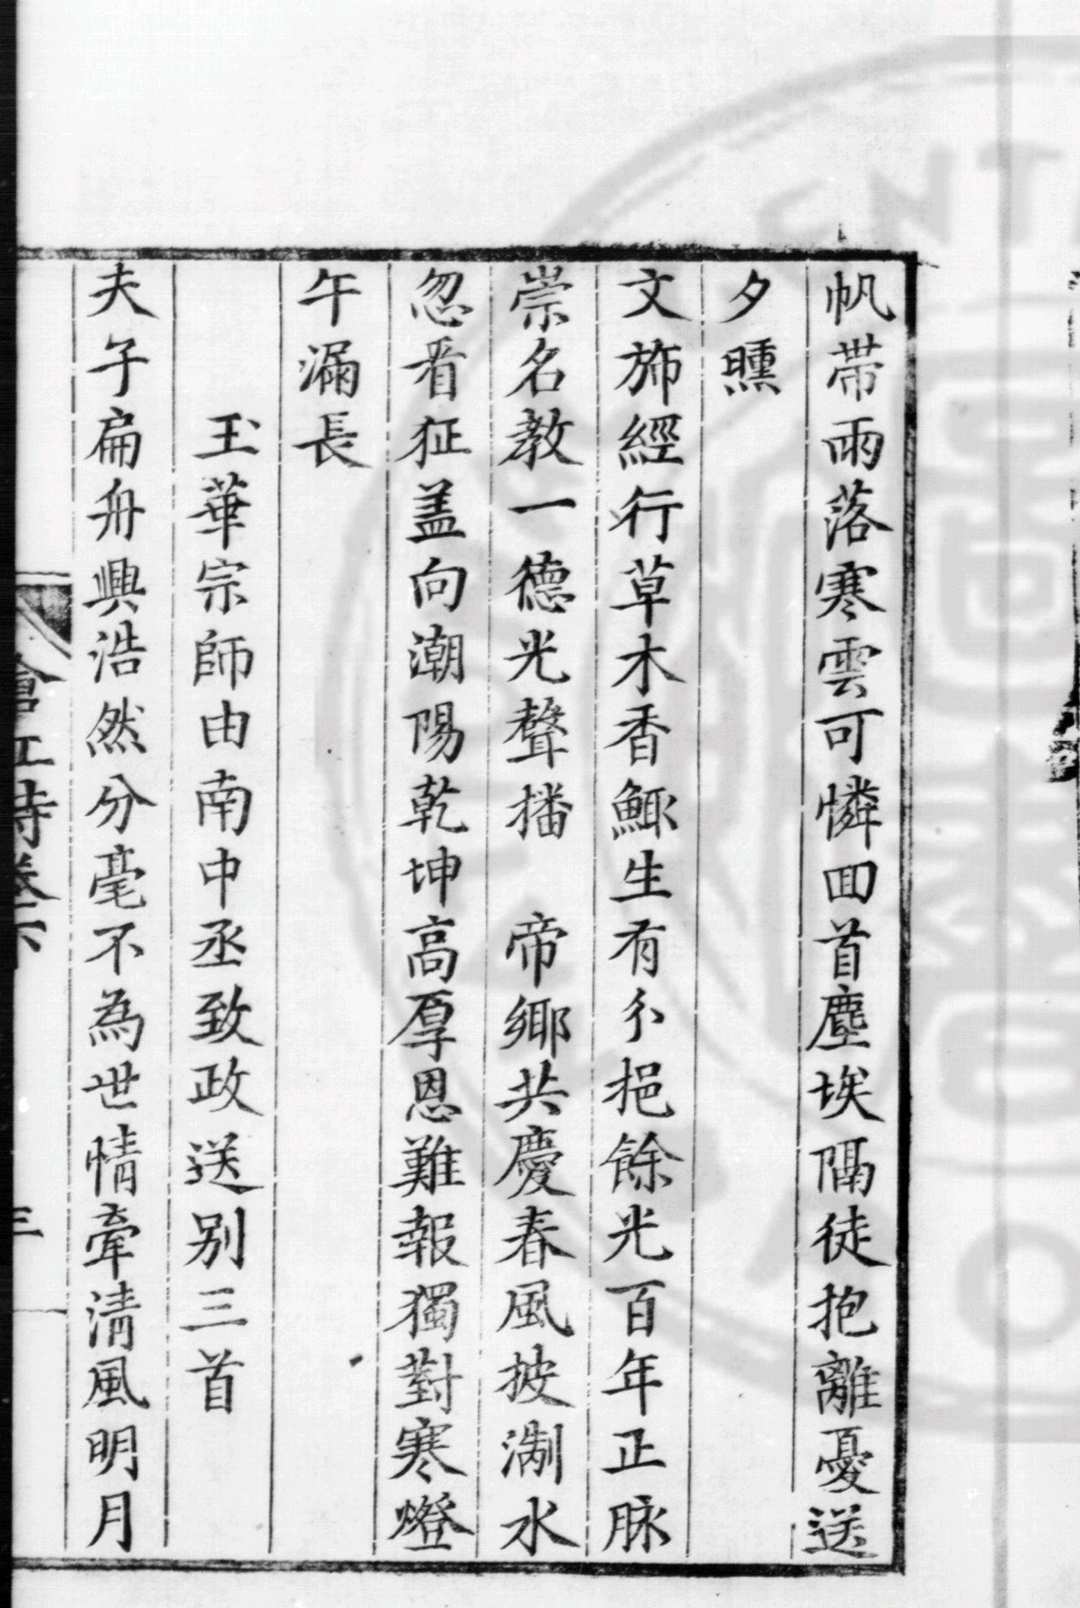 帆帶雨落寒雲可憐囬首塵埃隔徒抱離憂送
夕曛
文斾經行草木香鯫生有分挹餘光百年正脉
崇名教一德光聲播　帝鄉共慶春風披淛水
忽看征盖向潮陽乾坤高厚恩難報獨對寒燈
午漏長
玉華宗師由南中丞致政送别三首
夫子扁舟興浩然分毫不為世情牽清風明月
滄江詩卷下
三